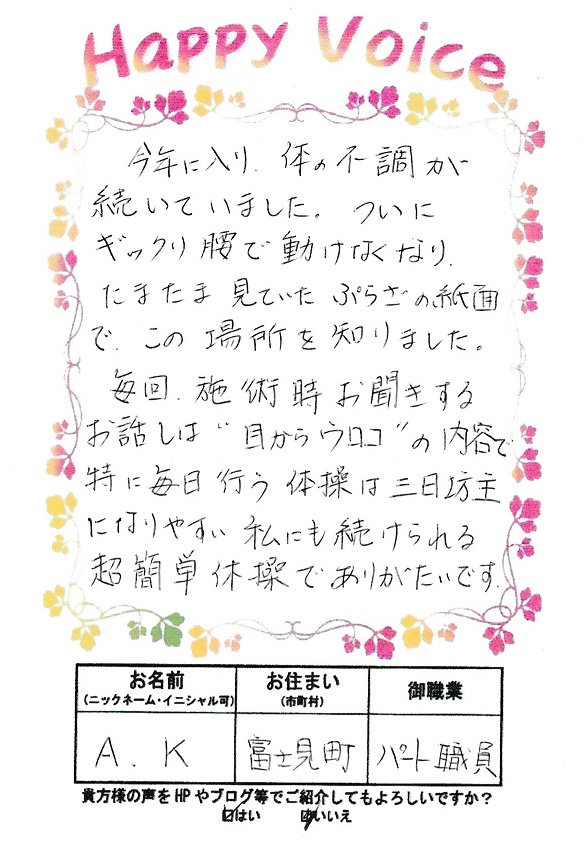 Happy Voice
今年に入り、体の不調が
続いていました。ついに
ギックリ腰で動けなくなり、
たまたま見ていたぷらざの紙面
で、この場所を知りました。
毎回、施術時お聞きする
お話しは"目からウロコ"の内容で
特に毎日行う体操は三日坊主
になりやすい私にも続けられる
超簡単体操でありがたいです。
お名前
(ニックネーム・イニシャル可)
お住まい
(市町村)
御職業
A.K
富士見町
パート職員
貴方様の声をHPやブログ等でご紹介してもよろしいですか？
☑はい ☐いいえ